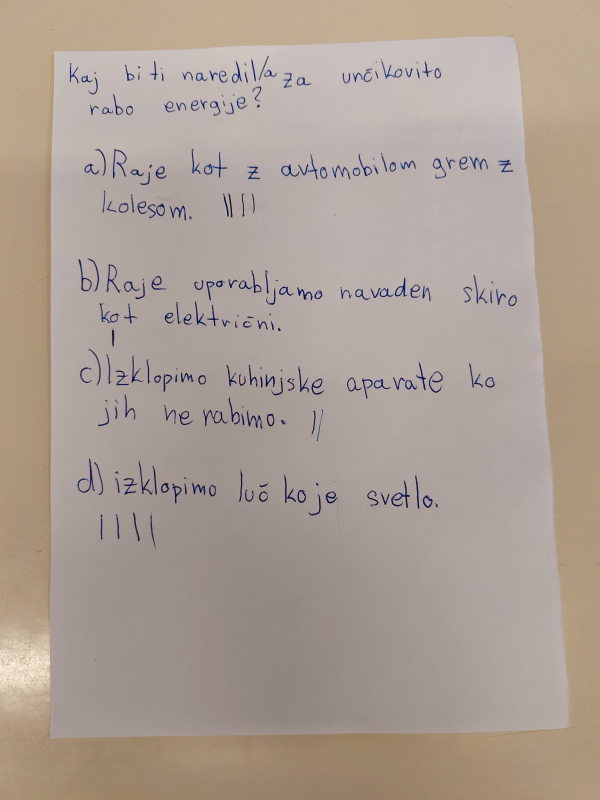 Kaj bi ti naredil/a za unčikovito
rabo energije?
a) Raje kot z avtomobilom grem z
kolesom. ||||
b) Raje uporabljamo navaden skiro
kot električni.
|
c) Izklopimo kuhinjske aparate ko
jih ne rabimo. ||
d) izklopimo luč ko je svetlo.
||||